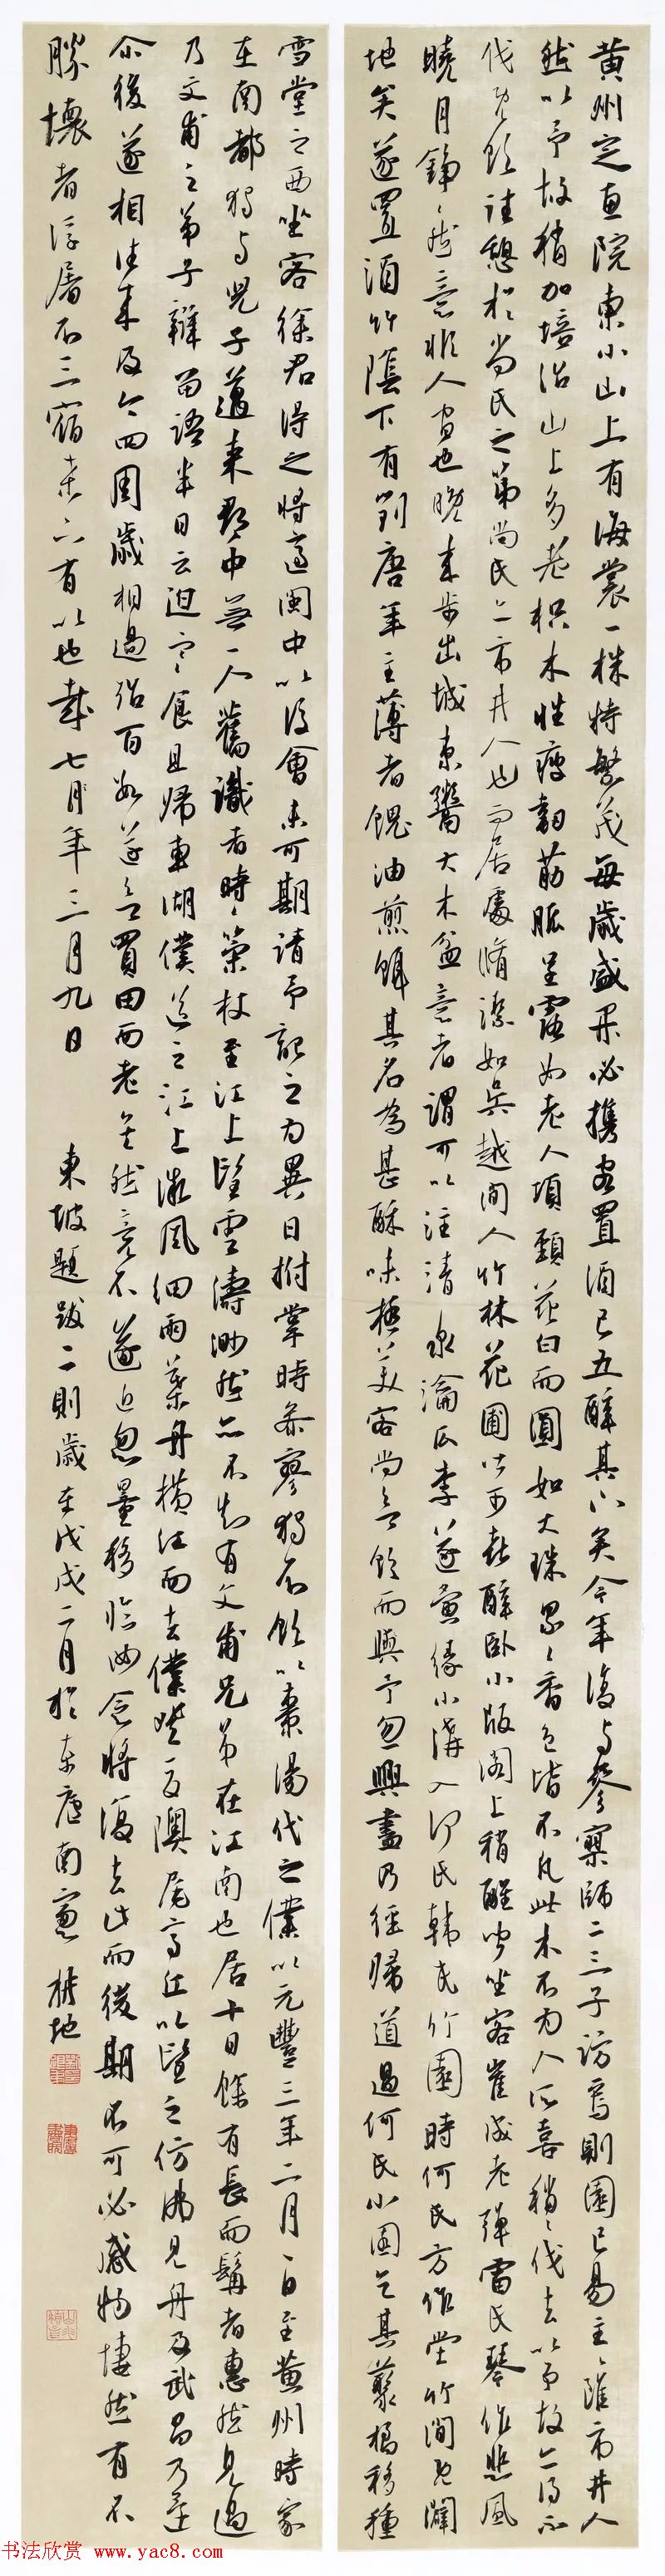 黄州定惠院東小山上有海棠一株特繁茂每歲盛開必攜客置酒已五醉其下矣今年復与參寥師二三子訪焉則園已易主主雖市井人
然以予故稍加培治山上多老枳木性瘦韌筋脈呈露如老人項頸花白而圓如大珠累累香色皆不凡此木不为人所喜稍稍伐去以予故亦得不
伐既飲往憩於尚氏之第尚氏亦市井人也而居處脩潔如吳越間人竹林花圃皆可喜醉臥小版閣上稍醒聞坐客崔成老彈雷氏琴作悲風
曉月錚錚然意非人間也晚来步出城東鬻大木盆意者謂可以注清泉瀹瓜李遂夤缘小溝入何氏韓氏竹園時何氏方作堂竹澗既闢
地矣遂置酒竹陰下有劉唐年主薄者餽油煎餌其名為甚酥味極美客尚欲飲而興予忽興盡乃徑歸道過何氏小圃乞其藂橘移種
雪堂之西坐客徐君得之將適閩中以後會未可期請予記之为異日拊掌時參寥獨不飲以棗湯代之僕以元豐三年二月一日至黄州時家
在南都獨与兒子邁来郡中無一人舊識者時時策杖至江上望雲濤渺然亦不知有文甫兄弟在江南也居十日餘有長而髯者惠然見過
乃文甫之弟子辯留語半日云迫寒食且歸東湖僕送之江上微風細雨葉舟横江而去僕登夏隩尾高丘以望之仿彿見舟及武昌乃還
尒後遂相往来及今四周歲相過殆百数遂欲買田而老焉然竟不遂近忽量移臨汝念將復去此而後期不可必感物悽然有不
勝懷者浮屠不三宿桑下有以也哉七月年三月九日　東坡題跋二則歲在戊戌二月於東廬南窗　耕地
书法欣赏 www.yac8.com